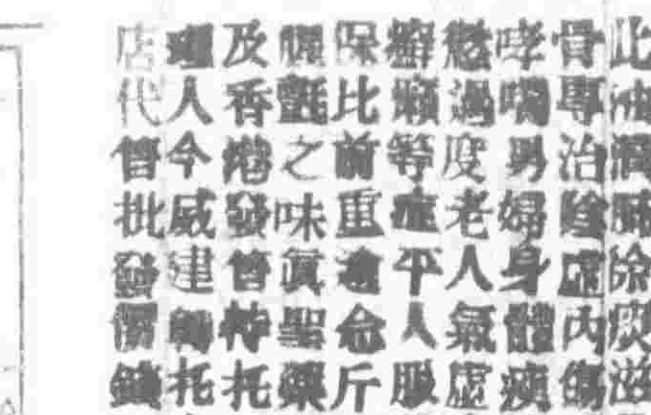 此油潤肺除痰滋
骨專治陰虛內傷
哮喘男婦身體瘦
憊過度老人氣虛
癬癩等症平人服
保比前重逾念斤
之味真聖藥
及香港發售特托
理人今威建 托
店代售批發價錢